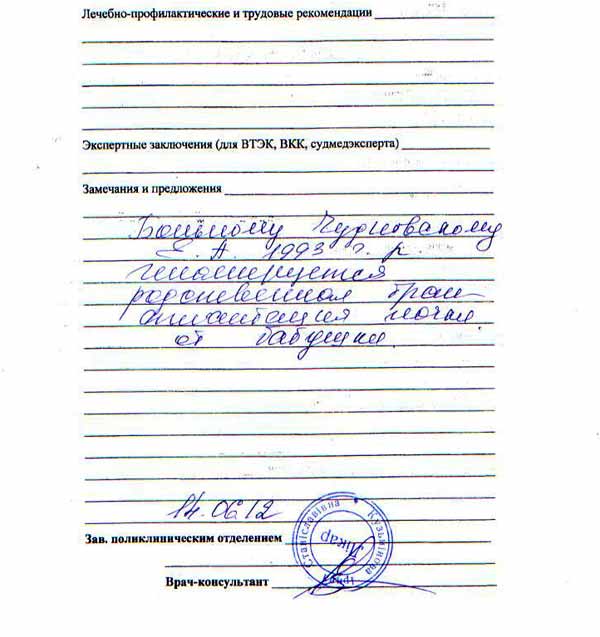 Лечебно-профилактические и трудовые рекомендации
Экспертные заключения (для ВТЭК, ВКК, судмедэксперта)
Замечания и предложения
Больному Чудновскому
Е. А. 1993 г. р.
планируется
родственная тран-
сплантация почки
от бабушки.
14.06 12
Зав. поликлиническим отделением
Врач-консультант
Кузьмінова
Ірина
Станіславівна
Лікар